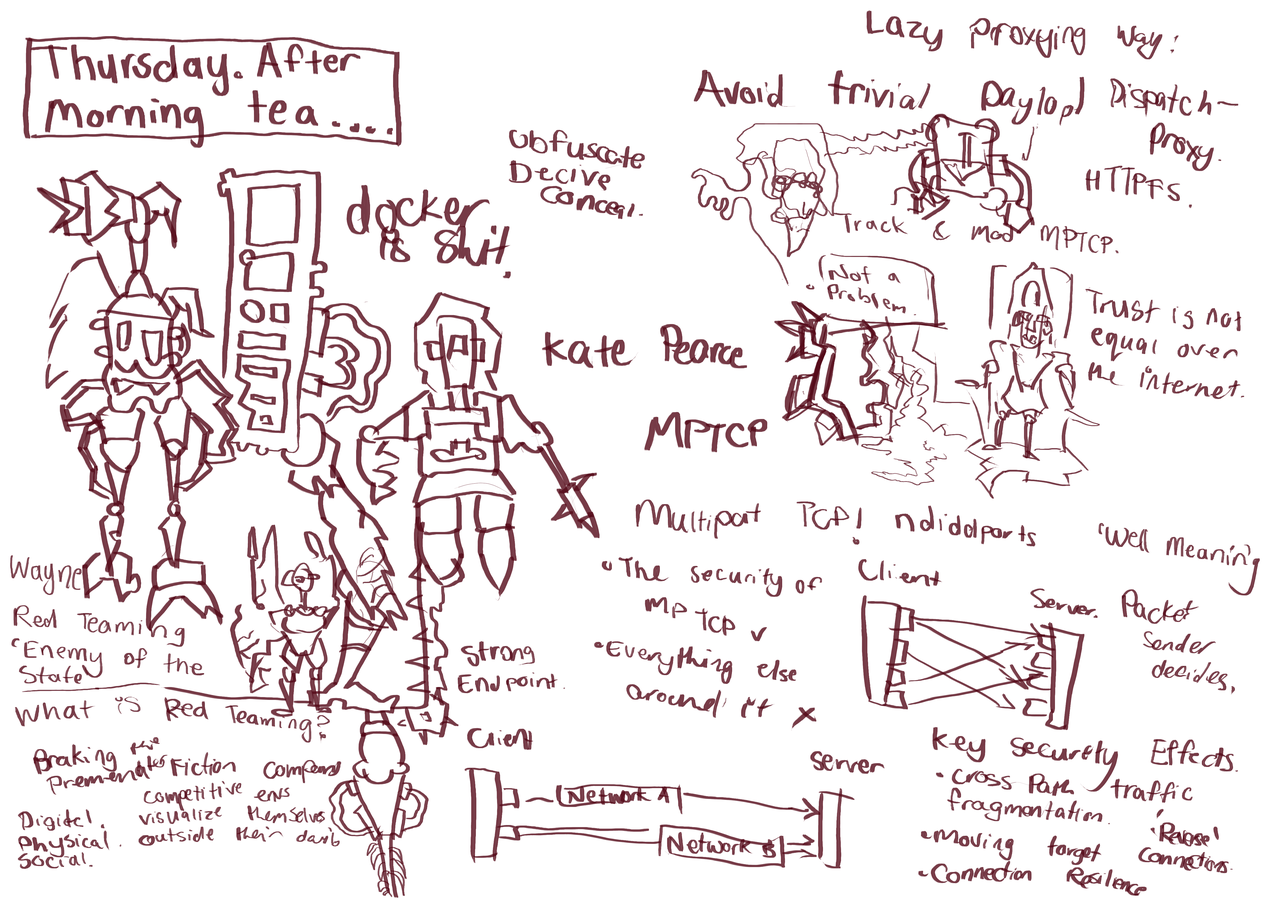 Thursday. After
morning tea....
docker
is shit.
Wayne
Red Teaming
"Enemy of the
State
What is Red Teaming?
Braking the
Fiction
competitive
visualize themselves
outside their
Digital.
Physical.
Social.
Obfuscate
Decive
Conceal.
Kate Pearce
MPTCP
Lazy proxying way:
Avoid trivial Paylod Dispatch-
Proxy.
HTTPFS.
Track & Mod MPTCP.
Not a
Problem.
Trust is not
equal over
the internet.
Multipart TCP! ndiddlports
• The security of
MP TCP ✓
• Everything else
around it x
"Well Meaning
Client
Server.
Packet
Sender
decides.
Strong
Endpoint.
Client
Server
Network A
Network B
Key Security Effects.
• Cross Path traffic
fragmentation.
• Moving target
• Connection Resilence
'Reverse'
Connections.